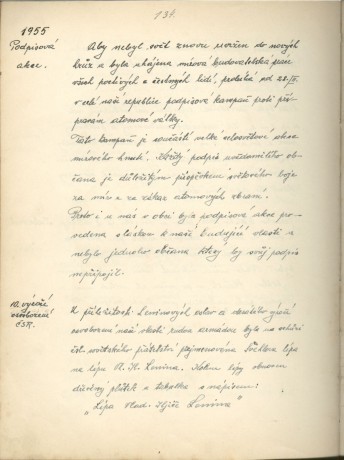 134.
1955
Podpisová
akce.
Aby nebyl svět znovu uvržen do nových
hrůz a byla uhájena mírová budovatelská práce
všech poctivých a čestných lidí, probíhá od
v celé naší republice podpisová kampaň proti pří-
pravám atomové války.
Tato kampaň je součástí velké celosvětové akce
mírového hnutí. Každý podpis uvědomělého ob-
čana je důležitým příspěvkem světového boje
za mír a za zákaz atomových zbraní.
Proto i u nás v obci byla podpisová akce pro-
vedena s láskou k naší budující vlasti a
nebylo jednoho občana který by svůj podpis
nepřipojil.
10. výročí
osvobození
ČSR.
K příležitosti Leninových oslav a desátého výročí
osvobození naší vlasti rudou armádou byla na schůzi
čsl. sovětského přátelství pojmenována lípa
na lípu Lenina. Kolem lípy obnoven
dřevěný plůtek a tabulka s nápisem:
"Lípa Vlad. Iljiče Lenina"